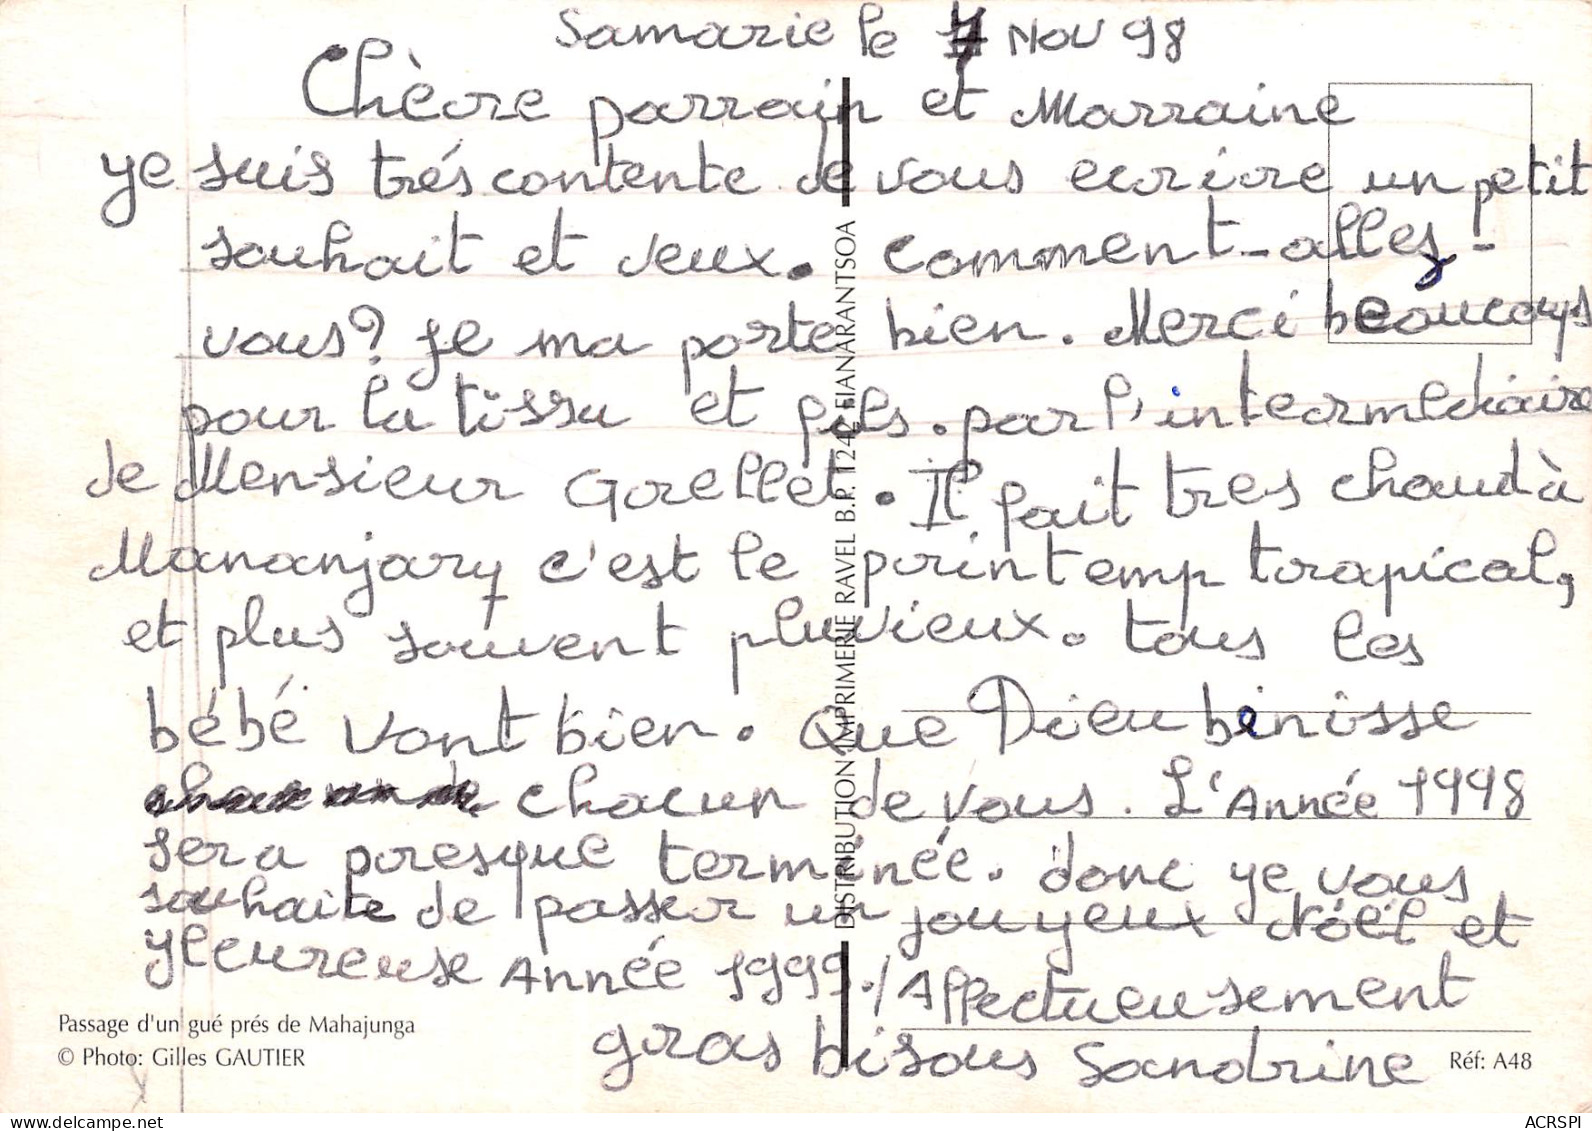 Samarie le 7 Nov 98
Chère parrain et Marraine
ye suis trés contente de vous ecrire un petit
souhait et veux. Comment-alles-
vous? Je ma porte bien. Merci beaucoups
pour la tissu et fils. par l'intermediaire
de Mensieur Grellet. Il fait tres chaud à
Mananjary c'est le printemp tropical,
et plus souvent pluvieux. tous les
bébé vont bien. Que Dieu binisse
chacun de vous. L'Année 1998
sera presque terminée. donc ye vous
souhaite de passer un jouyeux Nöel et
Heureuse Année 1999./ Affectueusement
gras bisous Sandrine
DISTRIBUTION IMPRIMERIE RAVEL B.P. 1242 FIANARANTSOA
Passage d'un gué prés de Mahajunga
© Photo: Gilles GAUTIER
Réf: A48
delcampe.net
ACRSPI